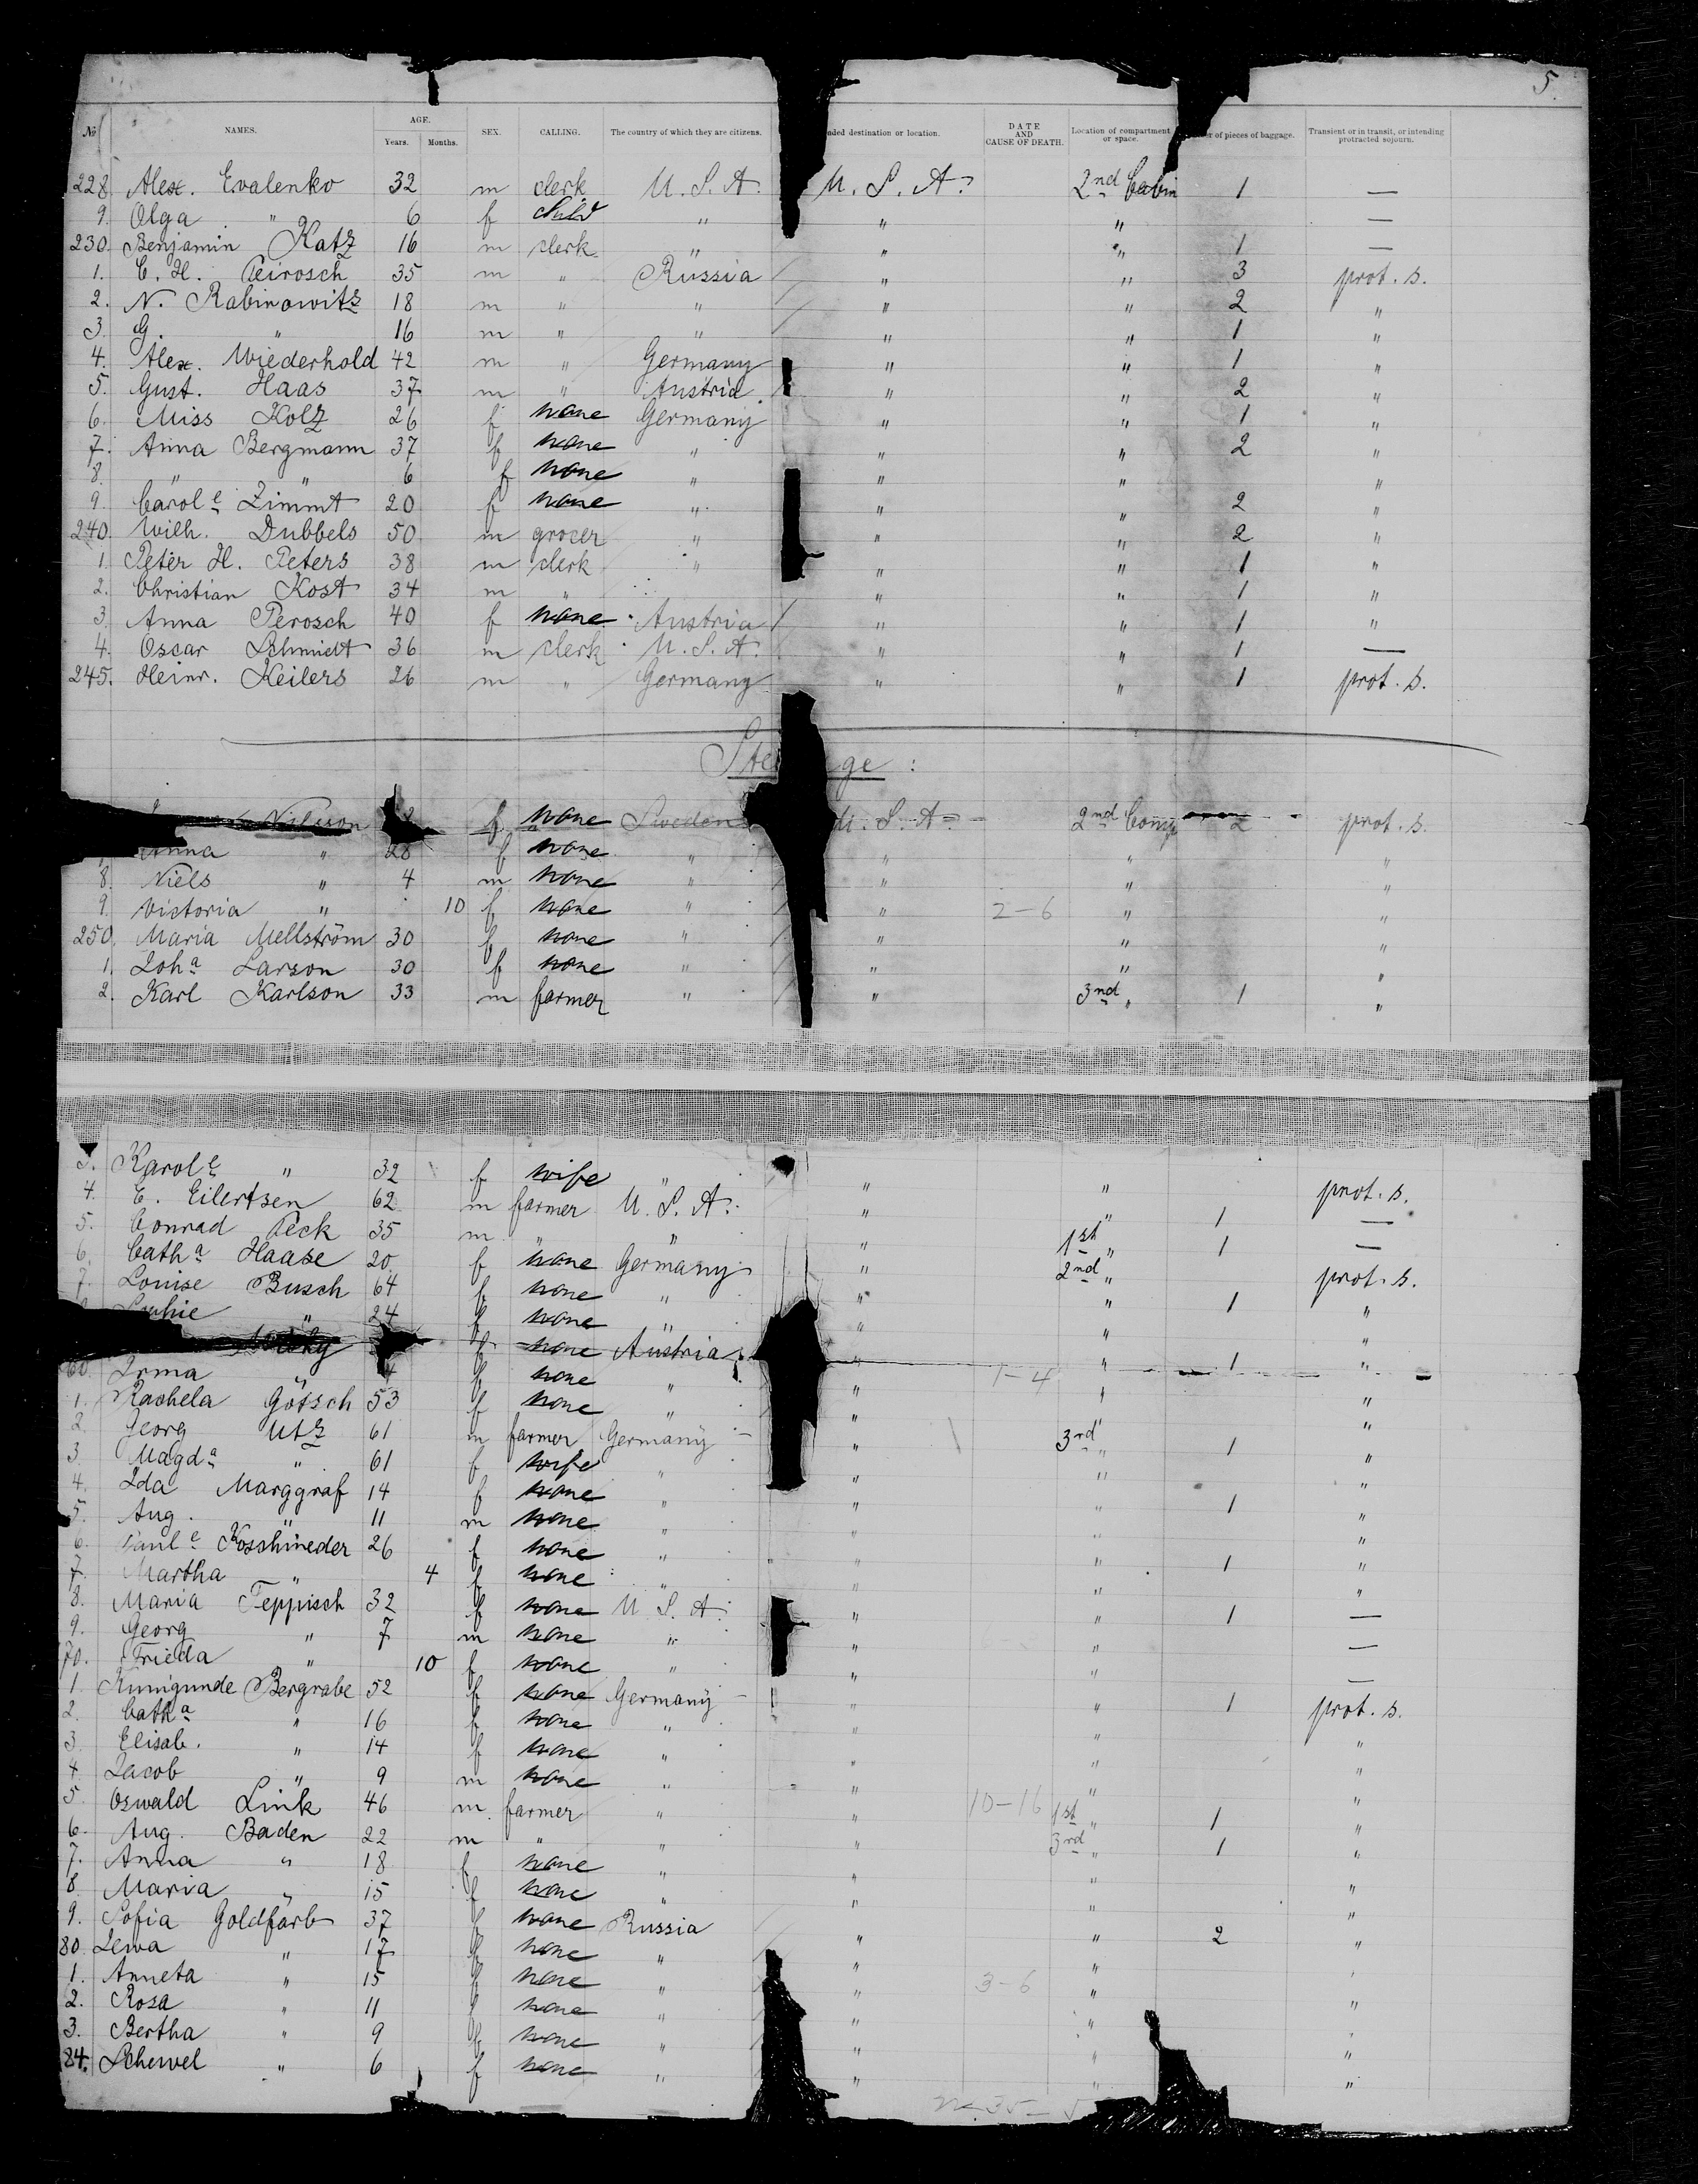 5.
No. NAMES. AGE. Years. Months. SEX. CALLING. The country of which they are citizens. nded destination or location. DATE AND CAUSE OF DEATH. Location of compartment or space. of pieces of baggage. Transient or in transit, or intending protracted sojourn.
228. Alex. Evalenko 32 m clerk U. S. A. U. S. A. 2nd Cabin 1 —
9. Olga " 6 f child " " " —
230. Benjamin Katz 16 m clerk " " " 1 —
1. C. H. Peirosch 35 m " Russia " " 3 prot. s.
2. N. Rabinowitz 18 m " " " " 2 "
3. G. " 16 m " " " " 1 "
4. Alex. Wiederhold 42 m " Germany " " 1 "
5. Gust. Haas 37 m " Austria " " 2 "
6. Miss Kolz 26 f none Germany " " 1 "
7. Anna Bergmann 37 f none " " " 2 "
8. " " 6 f none " " " "
9. Carole Zimmt 20 f none " " " 2 "
240. Wilh. Dubbels 50 m grocer " " " 2 "
1. Peter H. Peters 38 m clerk " " " 1 "
2. Christian Kost 34 m " " " " 1 "
3. Anna Perosch 40 f none Austria " " 1 "
4. Oscar Schmidt 36 m clerk U. S. A. " " 1 —
245. Heinr. Keilers 26 m " Germany " " 1 prot. s.
Stee ge :
Nilsson f none Sweden U. S. A. 2nd Comp 2 prot. s.
Anna " 28 f none " " " "
8. Niels " 4 m none " " " "
9. Victoria " 10 f none " " 2-6 " "
250. Maria Mellström 30 f none " " " "
1. Joha Larson 30 f none " " " "
2. Karl Karlson 33 m farmer " " 3nd " 1 "
3. Karole " 32 f wife " " " prot. s.
4. E. Eilertsen 62 m farmer U. S. A. " " 1 —
5. Conrad Peck 35 m " " " 1st " 1 —
6. Catha Haase 20 f none Germany " 2nd " prot. s.
7. Louise Busch 64 f none " " " 1 "
Sophie " 24 f none " " " "
f none Austria " " 1 "
60. Irma " 4 f none " " 1-4 " "
1. Rachela Götsch 53 f none " " " "
2. Georg Utz 61 m farmer Germany " 3rd " 1 "
3. Magda " 61 f wife " " " "
4. Ida Marggraf 14 f none " " " 1 "
5. Aug. " 11 m none " " " "
6. Paule Koschineder 26 f none " " " 1 "
7. Martha " 4 f none " " " "
8. Maria Teppisch 32 f none U. S. A. " " 1 —
9. Georg " 7 m none " " " —
70. Frieda " 10 f none " " " —
1. Kunigunde Bergrabe 52 f none Germany " " 1 prot. s.
2. Catha " 16 f none " " " "
3. Elisab. " 14 f none " " " "
4. Jacob " 9 m none " " " "
5. Oswald Link 46 m farmer " " 10-16 1st " 1 "
6. Aug. Baden 22 m " " " 3rd " 1 "
7. Anna " 18 f none " " " "
8. Maria " 15 f none " " " "
9. Sofia Goldfarb 37 f none Russia " " 2 "
80. Lewa " 17 f none " " " "
1. Anneta " 15 f none " " 3-6 " "
2. Rosa " 11 f none " " " "
3. Bertha " 9 f none " " " "
84. Schewel " 6 f none " " " "